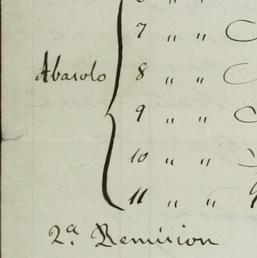 7 " "
Abasolo 8 " "
9 " "
10 " "
11 " "
2ª Remision